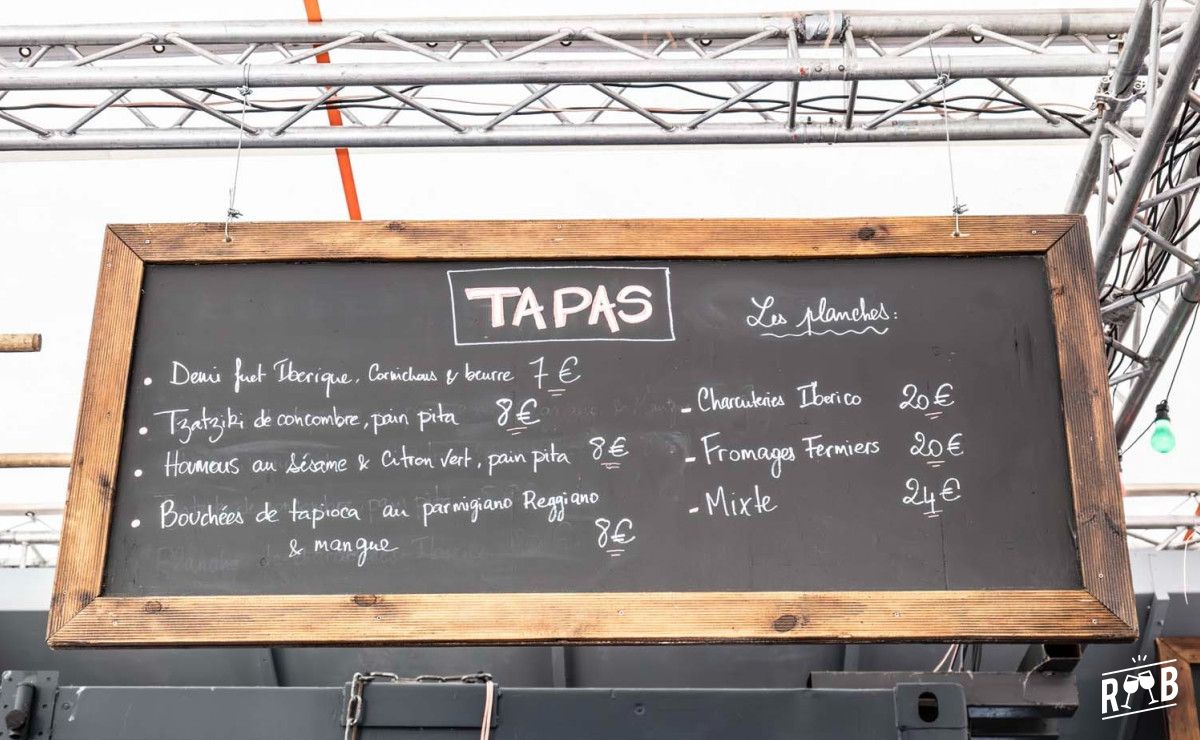 TAPAS
• Demi fuet Iberique, Cornichons & beurre 7 €
• Tzatziki de concombre, pain pita 8 €
• Houmous au Sésame & Citron vert, pain pita 8 €
• Bouchées de tapioca au parmigiano Reggiano
& mangue 8 €
Les planches:
- Charcuteries Iberico 20 €
- Fromages Fermiers 20 €
- Mixte 24 €
R B